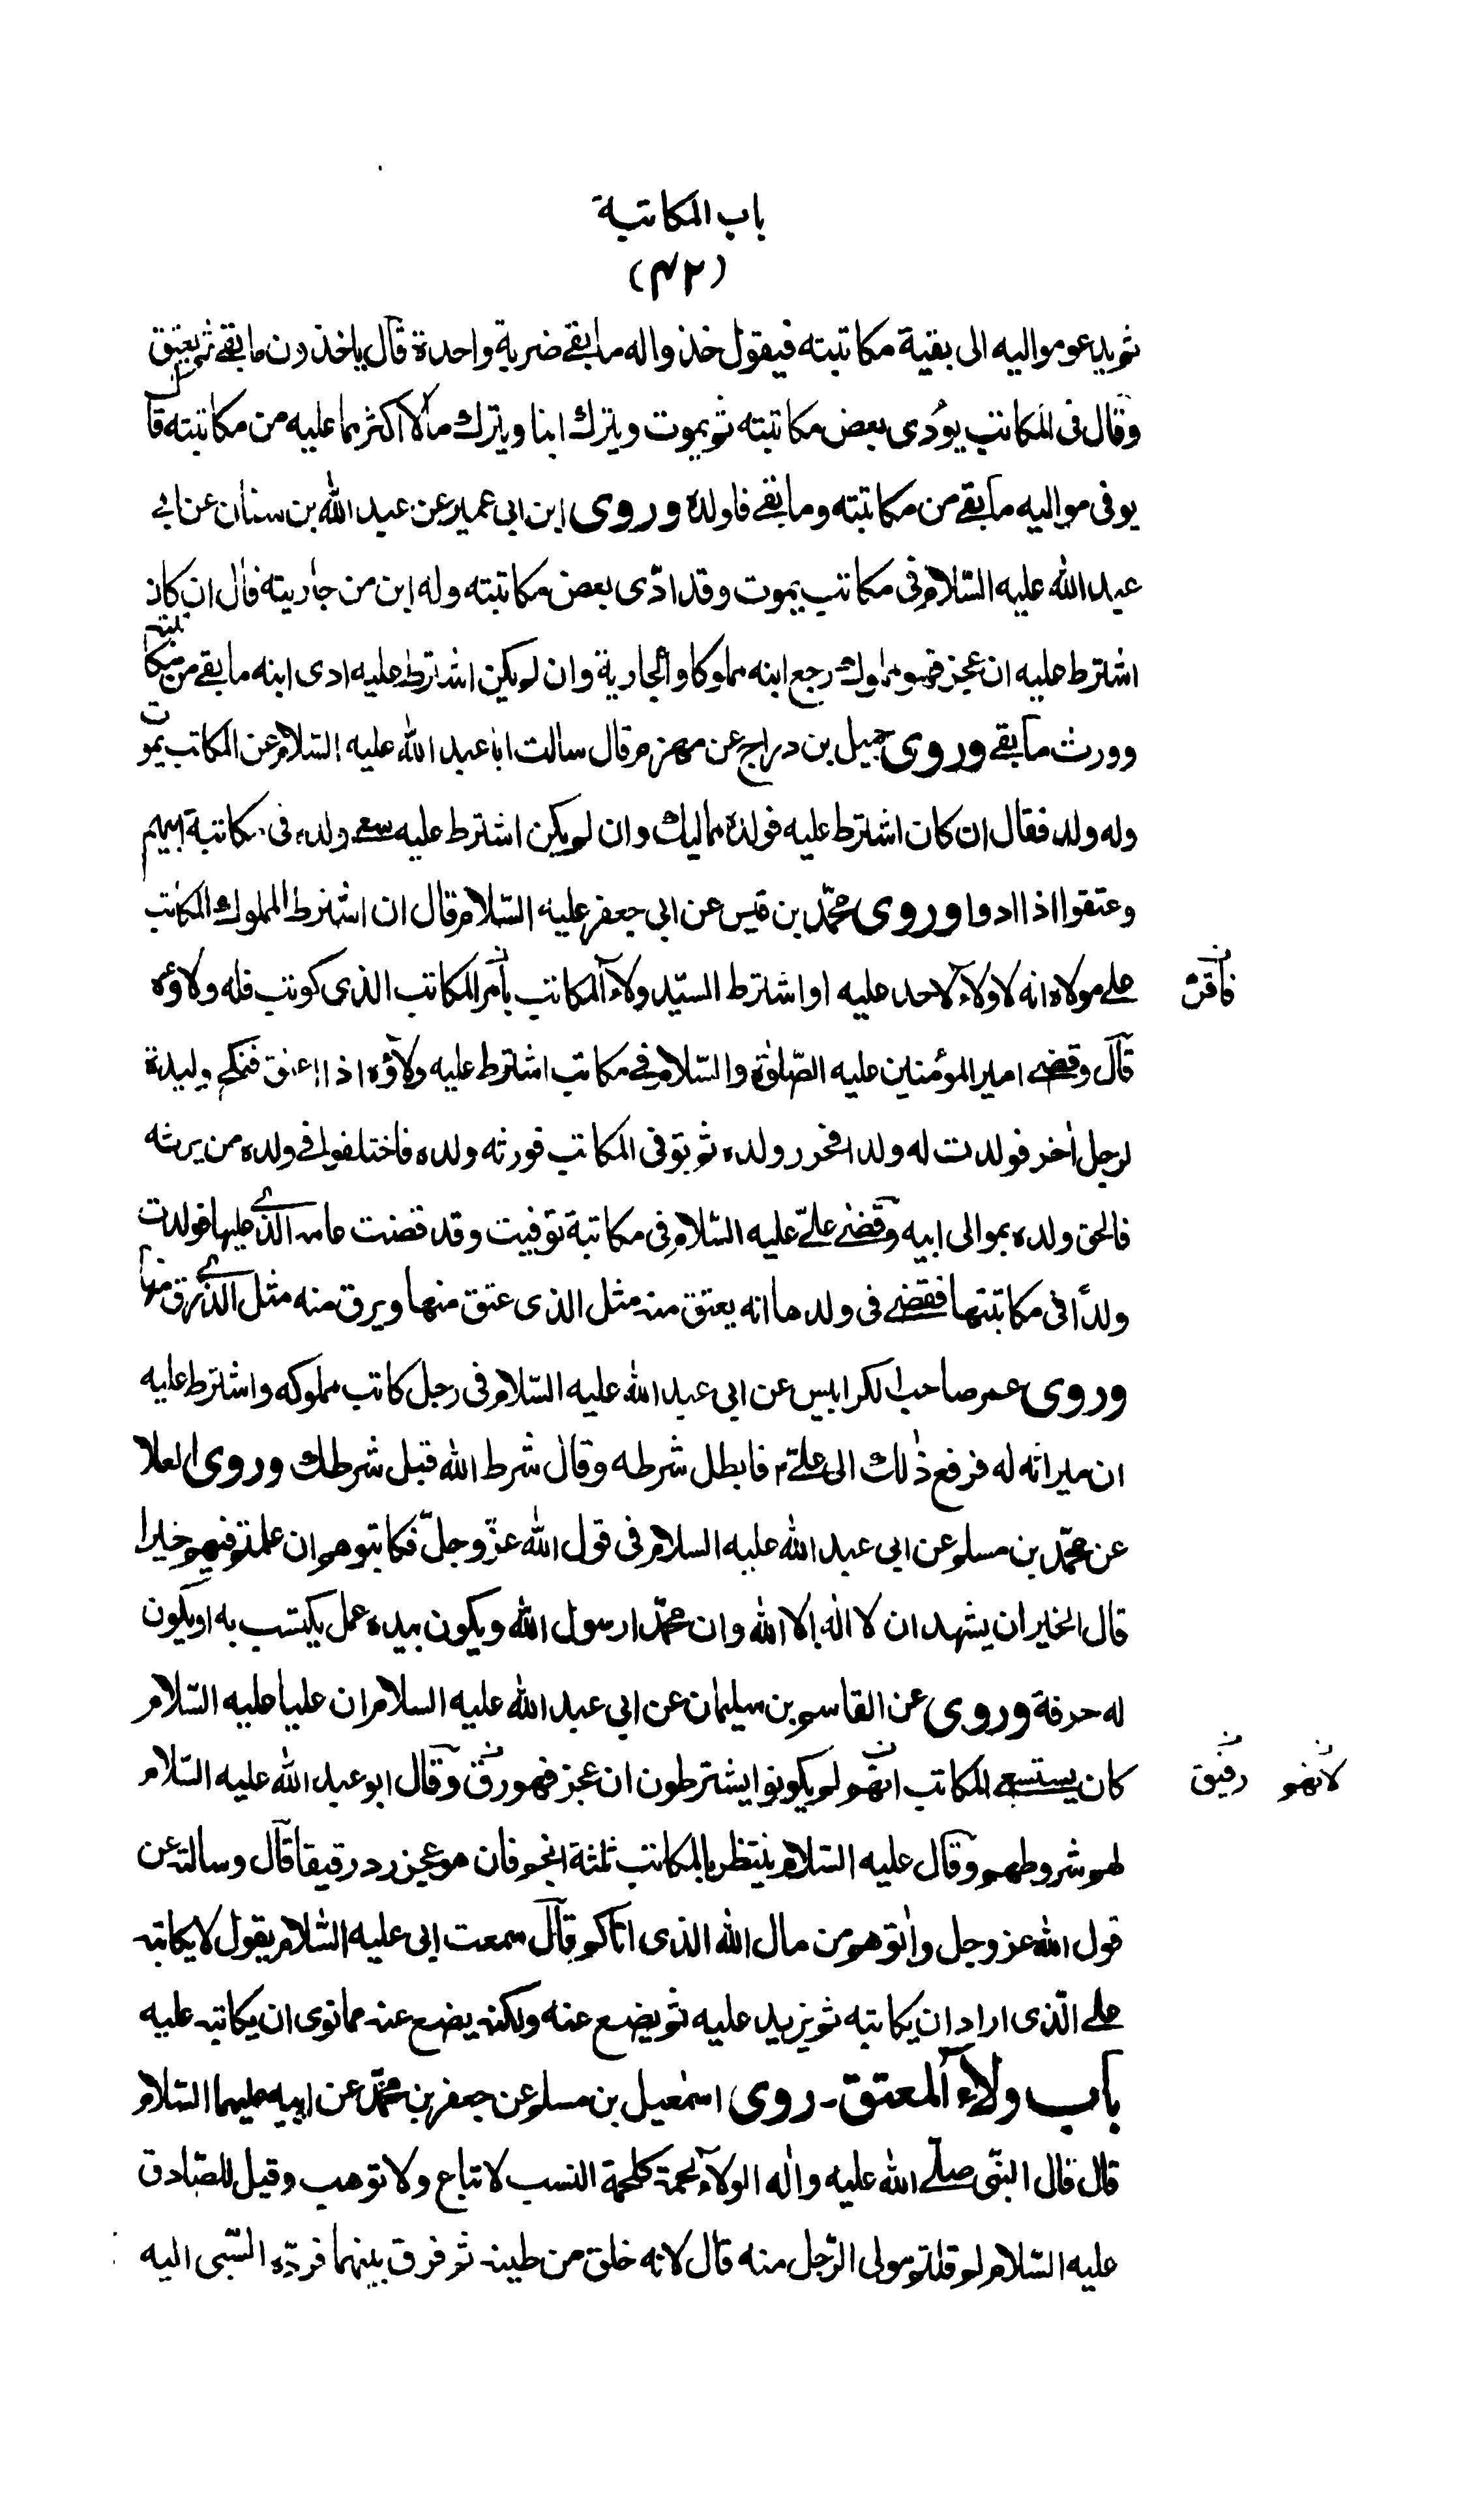 باب المكاتبة
(۴۲)
ثم يدعو مواليه الى بقية مكاتبته فيقول خذوا له ما بقى ضربة واحدة قال ياخذون ما بقى ثم يعتق
وقال فى المكاتب يؤدى بعض مكاتبته ثم يموت ويترك ابنا ويترك مالا اكثر مما عليه من مكاتبته قال
يوفى مواليه ما بقى من مكاتبته وما بقى فلولده وروى ابن ابى عمير عن عبد الله بن سنان عن ابى
عبد الله عليه السّلام فى مكاتب يموت وقد ادّى بعض مكاتبته وله ابن من جاريته قال ان كان
اشترط عليه ان عجز فهو مملوك رجع ابنه مملوكا والجارية وان لم يكن اشترط عليه ادى ابنه ما بقى من مكاتبته
وورث ما بقى وروى جميل بن دراج عن مهزم قال سالت ابا عبد الله عليه السّلام عن المكاتب يموت
وله ولد فقال ان كان اشترط عليه فولده مماليك وان لم يكن اشترط عليه سعى ولده فى مكاتبة ابيهم
وعتقوا اذا ادوا وروى محمّد بن قيس عن ابى جعفر عليه السّلام قال ان اشترط المملوك المكاتب
على مولاه انه لا ولاء لاحد عليه او اشترط السيّد ولاء المكاتب فأقر المكاتب الذى كوتب فله ولاؤه
فأقرّ
قال وقضى امير المؤمنين عليه الصّلوة والسّلام فى مكاتب اشترط عليه ولاؤه اذا اعتق فنكح وليدة
لرجل اخر فولدت له ولدا فحرر ولده ثم توفى المكاتب فورثه ولده فاختلفوا فى ولده من يرثه
فالحق ولده بموالى ابيه وقضى علىّ عليه السّلام فى مكاتبة توفيت وقد قضت عامه الذى عليها فولدت
ولدًا فى مكاتبتها فقضى فى ولدها انه يعتق منه مثل الذى عتق منها ويرق منه مثل الذى رق منها
وروى عمر صاحب الكرابيس عن ابى عبد الله عليه السّلام فى رجل كاتب مملوكه واشترط عليه
ان ميراثه له فرفع ذلك الى علىّ ؑ فابطل شرطه وقال شرط الله قبل شرطك وروى العلا
عن محمّد بن مسلم عن ابى عبد الله عليه السلام فى قول الله عزّ وجلّ فكاتبوهم ان علمتم فيهم خيرا
قال الخير ان يشهد ان لا اله الا الله وان محمّدا رسول الله ويكون بيده عمل يكتسب به او يكون
له حرفة وروى عن القاسم بن سليمان عن ابى عبد الله عليه السلام ان عليا عليه السّلام
كان يستسعى المكاتب انّهم لم يكونوا يشترطون ان عجز فهو رق وقال ابو عبد الله عليه السّلام
رقيق لانهم
لهم شروطهم وقال عليه السّلام ينتظر بالمكاتب ثلثة انجم فان هو عجز رد رقيقا قال وسالته عن
قول الله عز وجل واتوهم من مال الله الذى اتاكم قال سمعت ابى عليه السّلام يقول لا يكاتبه
على الّذى اراد ان يكاتبه ثم يزيد عليه ثم يضع عنه ولكنه يضع عنه مما نوى ان يكاتبه عليه
باب ولاء المعتق ـ روى اسمعيل بن مسلم عن جعفر بن محمّد عن ابيه عليهما السّلام
قال قال النبّى صلّى الله عليه واله الولاء لحمة كلحمة النسب لا تباع ولا توهب وقيل للصّادق
عليه السّلام لم قلتم مولى الرّجل منه قال لانه خلق من طينه ثم فرق بينهما فردّه السّبى اليه